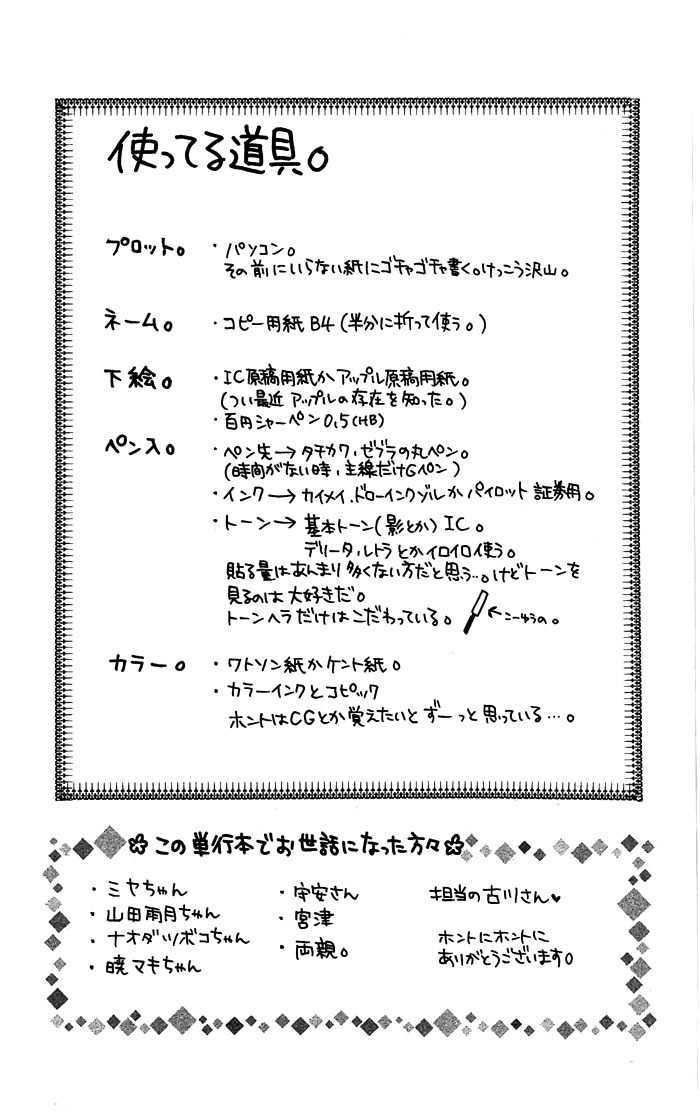 使ってる道具。
プロット。 ・パソコン。
その前にいらない紙にゴチャゴチャ書く。けっこう沢山。
ネーム。 ・コピー用紙 B4 (半分に折って使う。)
下絵。 ・IC原稿用紙かアップル原稿用紙。
(つい最近 アップルの存在を知った。)
・百円シャーペン 0.5(HB)
ペン入。 ・ペン先→タチカワ、ゼブラの丸ペン。
(時間がない時、主線だけGペン)
・インク→カイメイ.ドローインクゾルか パイロット 証券用。
・トーン→ 基本トーン(影とか) IC。
デリータ、レトラとかイロイロ使う。
貼る量はあんまり多くない方だと思う…。けどトーンを
見るのは大好きだ。
トーンヘラだけはこだわっている。 ←こーゆうの。
カラー。 ・ワトソン紙かケント紙。
・カラーインクとコピック
ホントはCGとか覚えたいとずーっと思っている…。
この単行本でお世話になった方々
・ミヤちゃん
・山田雨月ちゃん
・ナオダツボコちゃん
・暁マキちゃん
・宇安さん
・宮津
・両親。
担当の古川さん♥
ホントにホントに
ありがとうございます。